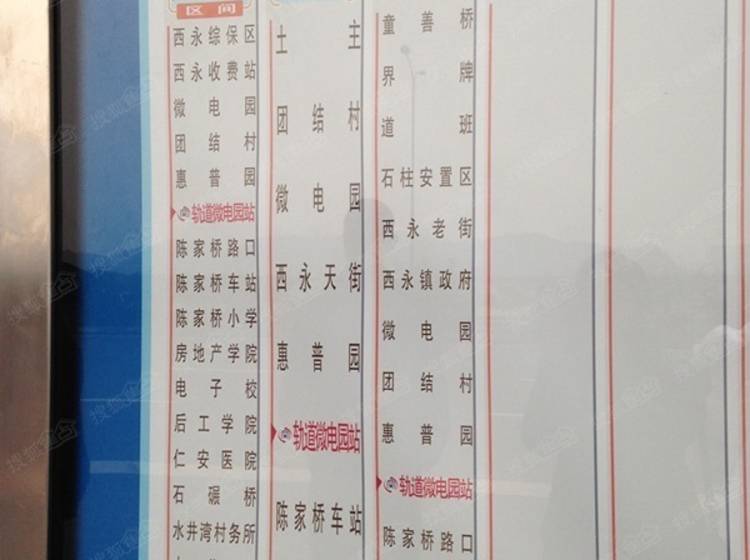 区间
西永综保区
西永收费站
微电园
团结村
惠普园
轨道微电园站
陈家桥路口
陈家桥车站
陈家桥小学
房地产学院
电子校
后工学院
仁安医院
石碾桥
水井湾村务所
土主
团结村
微电园
西永天街
惠普园
轨道微电园站
陈家桥车站
童善桥
界牌
道班
石柱安置区
西永老街
西永镇政府
微电园
团结村
惠普园
轨道微电园站
陈家桥路口